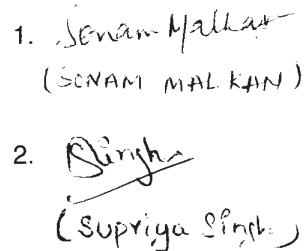 1. Sonam Malkan
(SONAM MALKAN)
2. Singh
(Supriya Singh)